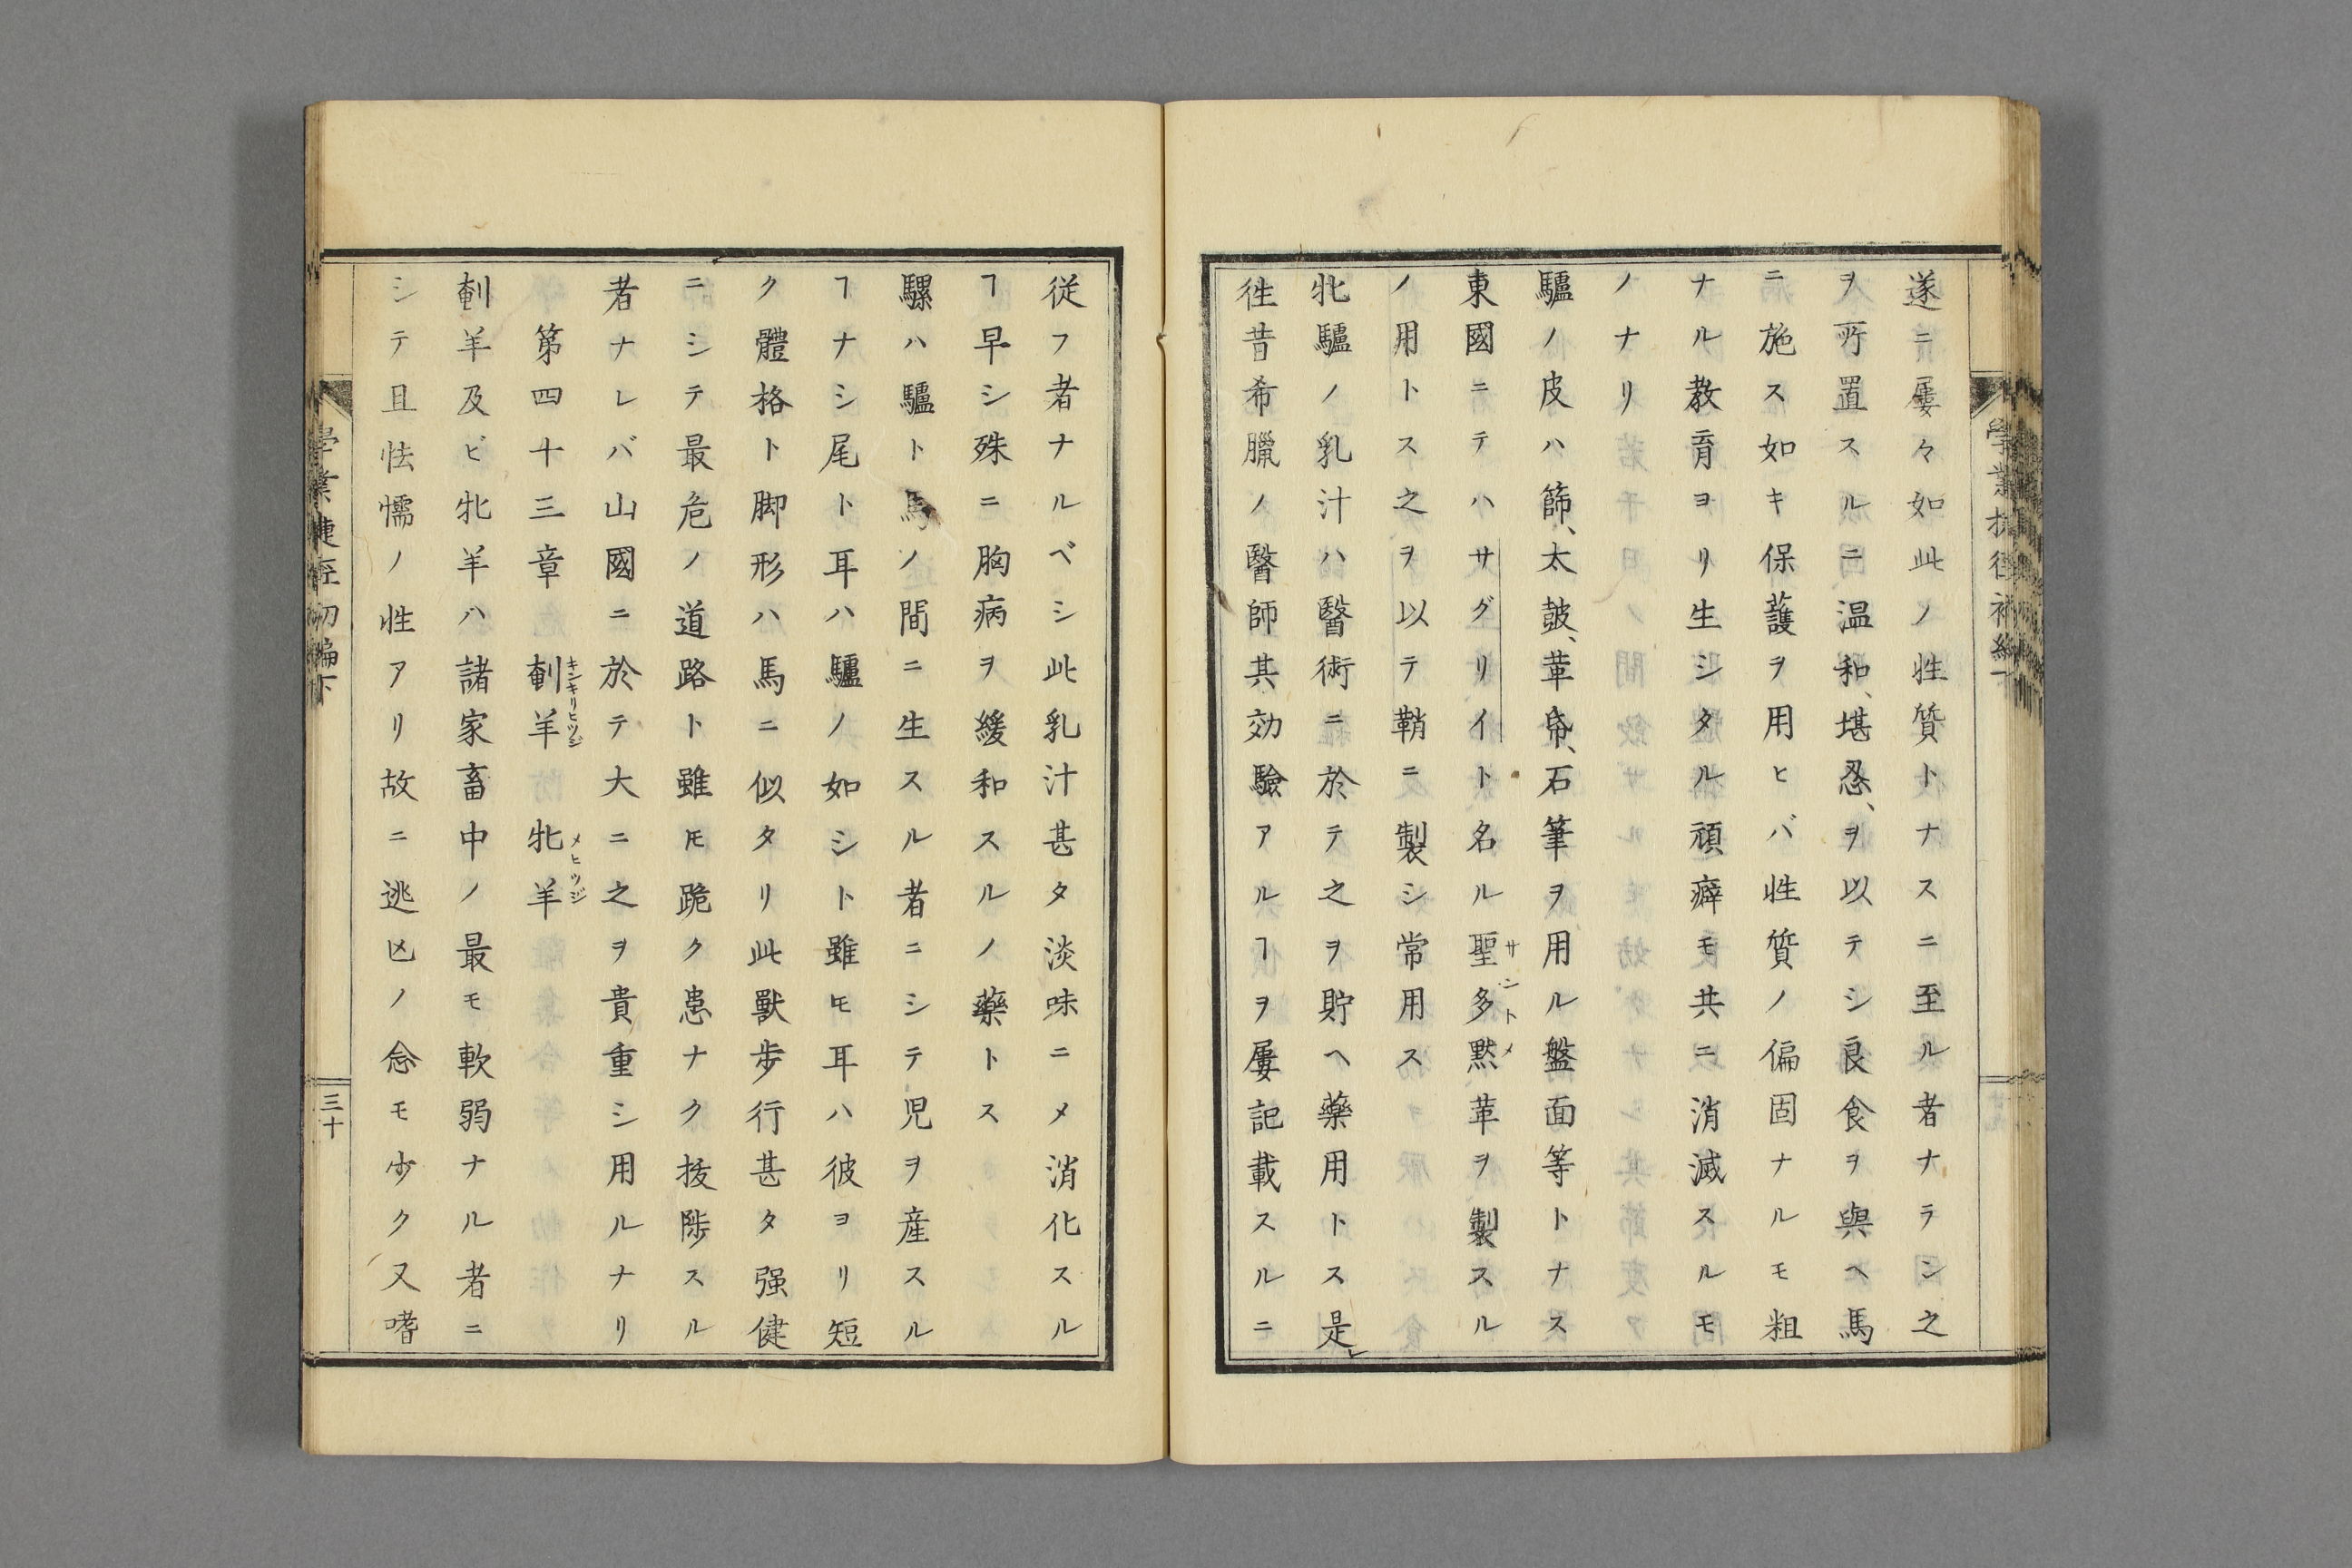 遂ニ屢々如此ノ性質トナスニ至ル者ナラン之
ヲ所置スルニ温和、堪忍、ヲ以テシ良食ヲ與ヘ馬
ニ施ス如キ保護ヲ用ヒバ性質ノ偏固ナルモ粗
ナル教育ヨリ生シタル頑癖モ共ニ消滅スルモ
ノナリ
驢ノ皮ハ篩、太皷、革帋、石筆ヲ用ル盤面等トナス
東國ニテハサグリイト名ル聖多黙革ヲ製スル
サントメ
ノ用トス之ヲ以テ鞘ニ製シ常用ス
牝驢ノ乳汁ハ醫術ニ於テ之ヲ貯ヘ藥用トス是レ
徃昔希臘ノ醫師其効驗アルヿヲ屢記載スルニ
従フ者ナルベシ此乳汁甚タ淡味ニメ消化スル
ヿ早シ殊ニ胸病ヲ緩和スルノ藥トス
騾ハ驢ト馬ノ間ニ生スル者ニシテ児ヲ産スル
ヿナシ尾ト耳ハ驢ノ如シト雖𪜈耳ハ彼ヨリ短
ク體格ト脚形ハ馬ニ似タリ此獸歩行甚タ强健
ニシテ最危ノ道路ト雖𪜈跪ク患ナク拔陟スル
者ナレバ山國ニ於テ大ニ之ヲ貴重シ用ルナリ
第四十三章 剦羊 牝羊
キンキリヒツジ メヒツジ
剦羊及ビ牝羊ハ諸家畜中ノ最モ軟弱ナル者ニ
シテ且怯懦ノ性アリ故ニ逃凶ノ念モ少ク又嗜
學業捷徑初編下
三十